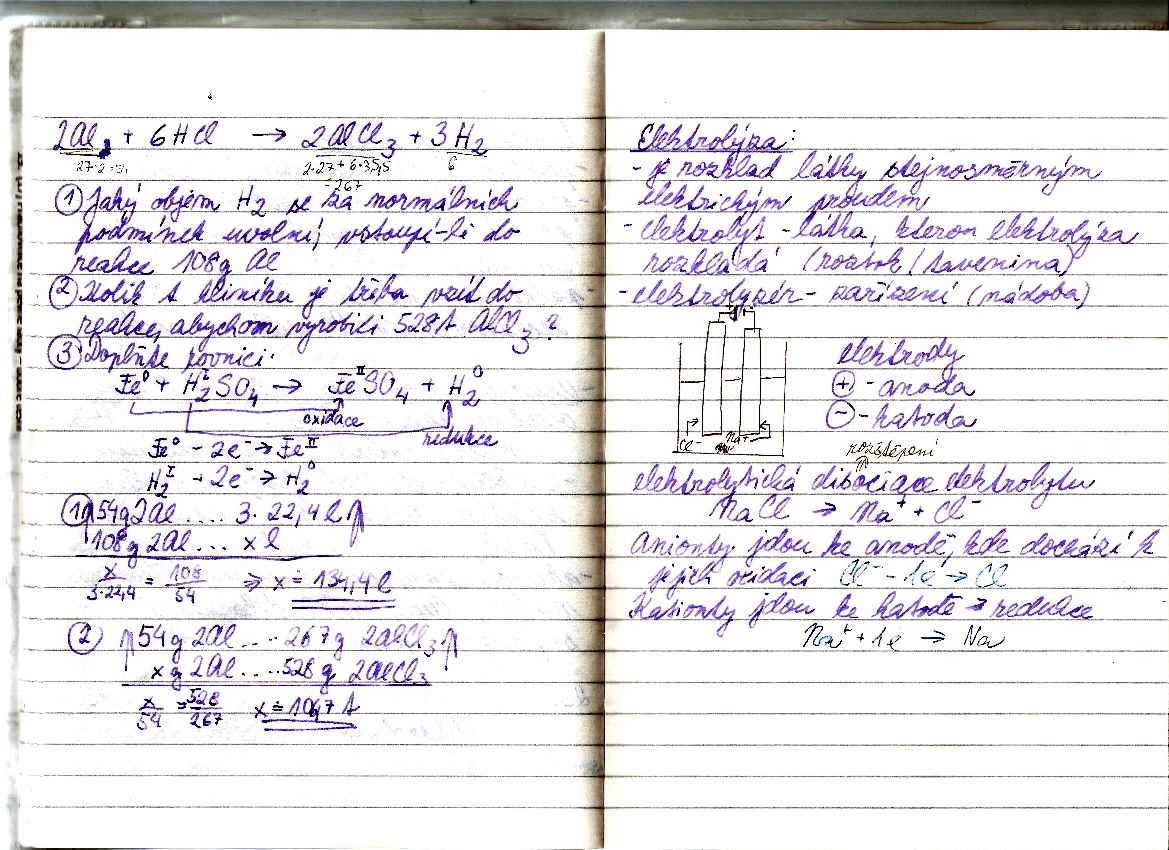 2Al + 6HCl → 2AlCl₃ + 3H₂
2·27+6·35,5 6
=267
① Jaký objem H₂ se za normálních
podmínek uvolní, vstoupí-li do
reakce 108g Al
② Kolik t hliníku je třeba vzít do
reakce, abychom vyrobili 528t AlCl₃?
③ Doplňte rovnici:
Fe⁰ + H₂ᴵSO₄ → FeᴵᴵSO₄ + H₂⁰
oxidace
redukce
Fe⁰ - 2e⁻ → Feᴵᴵ
H₂ᴵ + 2e⁻ → H₂⁰
① ↑54g 2Al .... 3·22,4 l↑
108g 2Al ... x l
x/3·22,4 = 108/54 ⇒ x ≐ 134,4 l
② ↑54g 2Al ... 267g 2AlCl₃↑
x g 2Al .... 528g 2AlCl₃
x/54 = 528/267 x ≐ 106,7 t
Elektrolýza:
- je rozklad látky stejnosměrným
elektrickým proudem
- elektrolyt - látka, kterou elektrolýza
rozkládá (roztok / tavenina)
- elektrolyzér - zařízení (nádoba)
elektrody
⊕ - anoda
⊖ - katoda
Cl⁻ Na⁺
rozštěpení
elektrolytická disociace elektrolytu
NaCl → Na⁺ + Cl⁻
Anionty jdou ke anodě, kde dochází k
jejich oxidaci Cl⁻ - 1e → Cl
Kationty jdou ke katodě → redukce
Na⁺ + 1e → Na